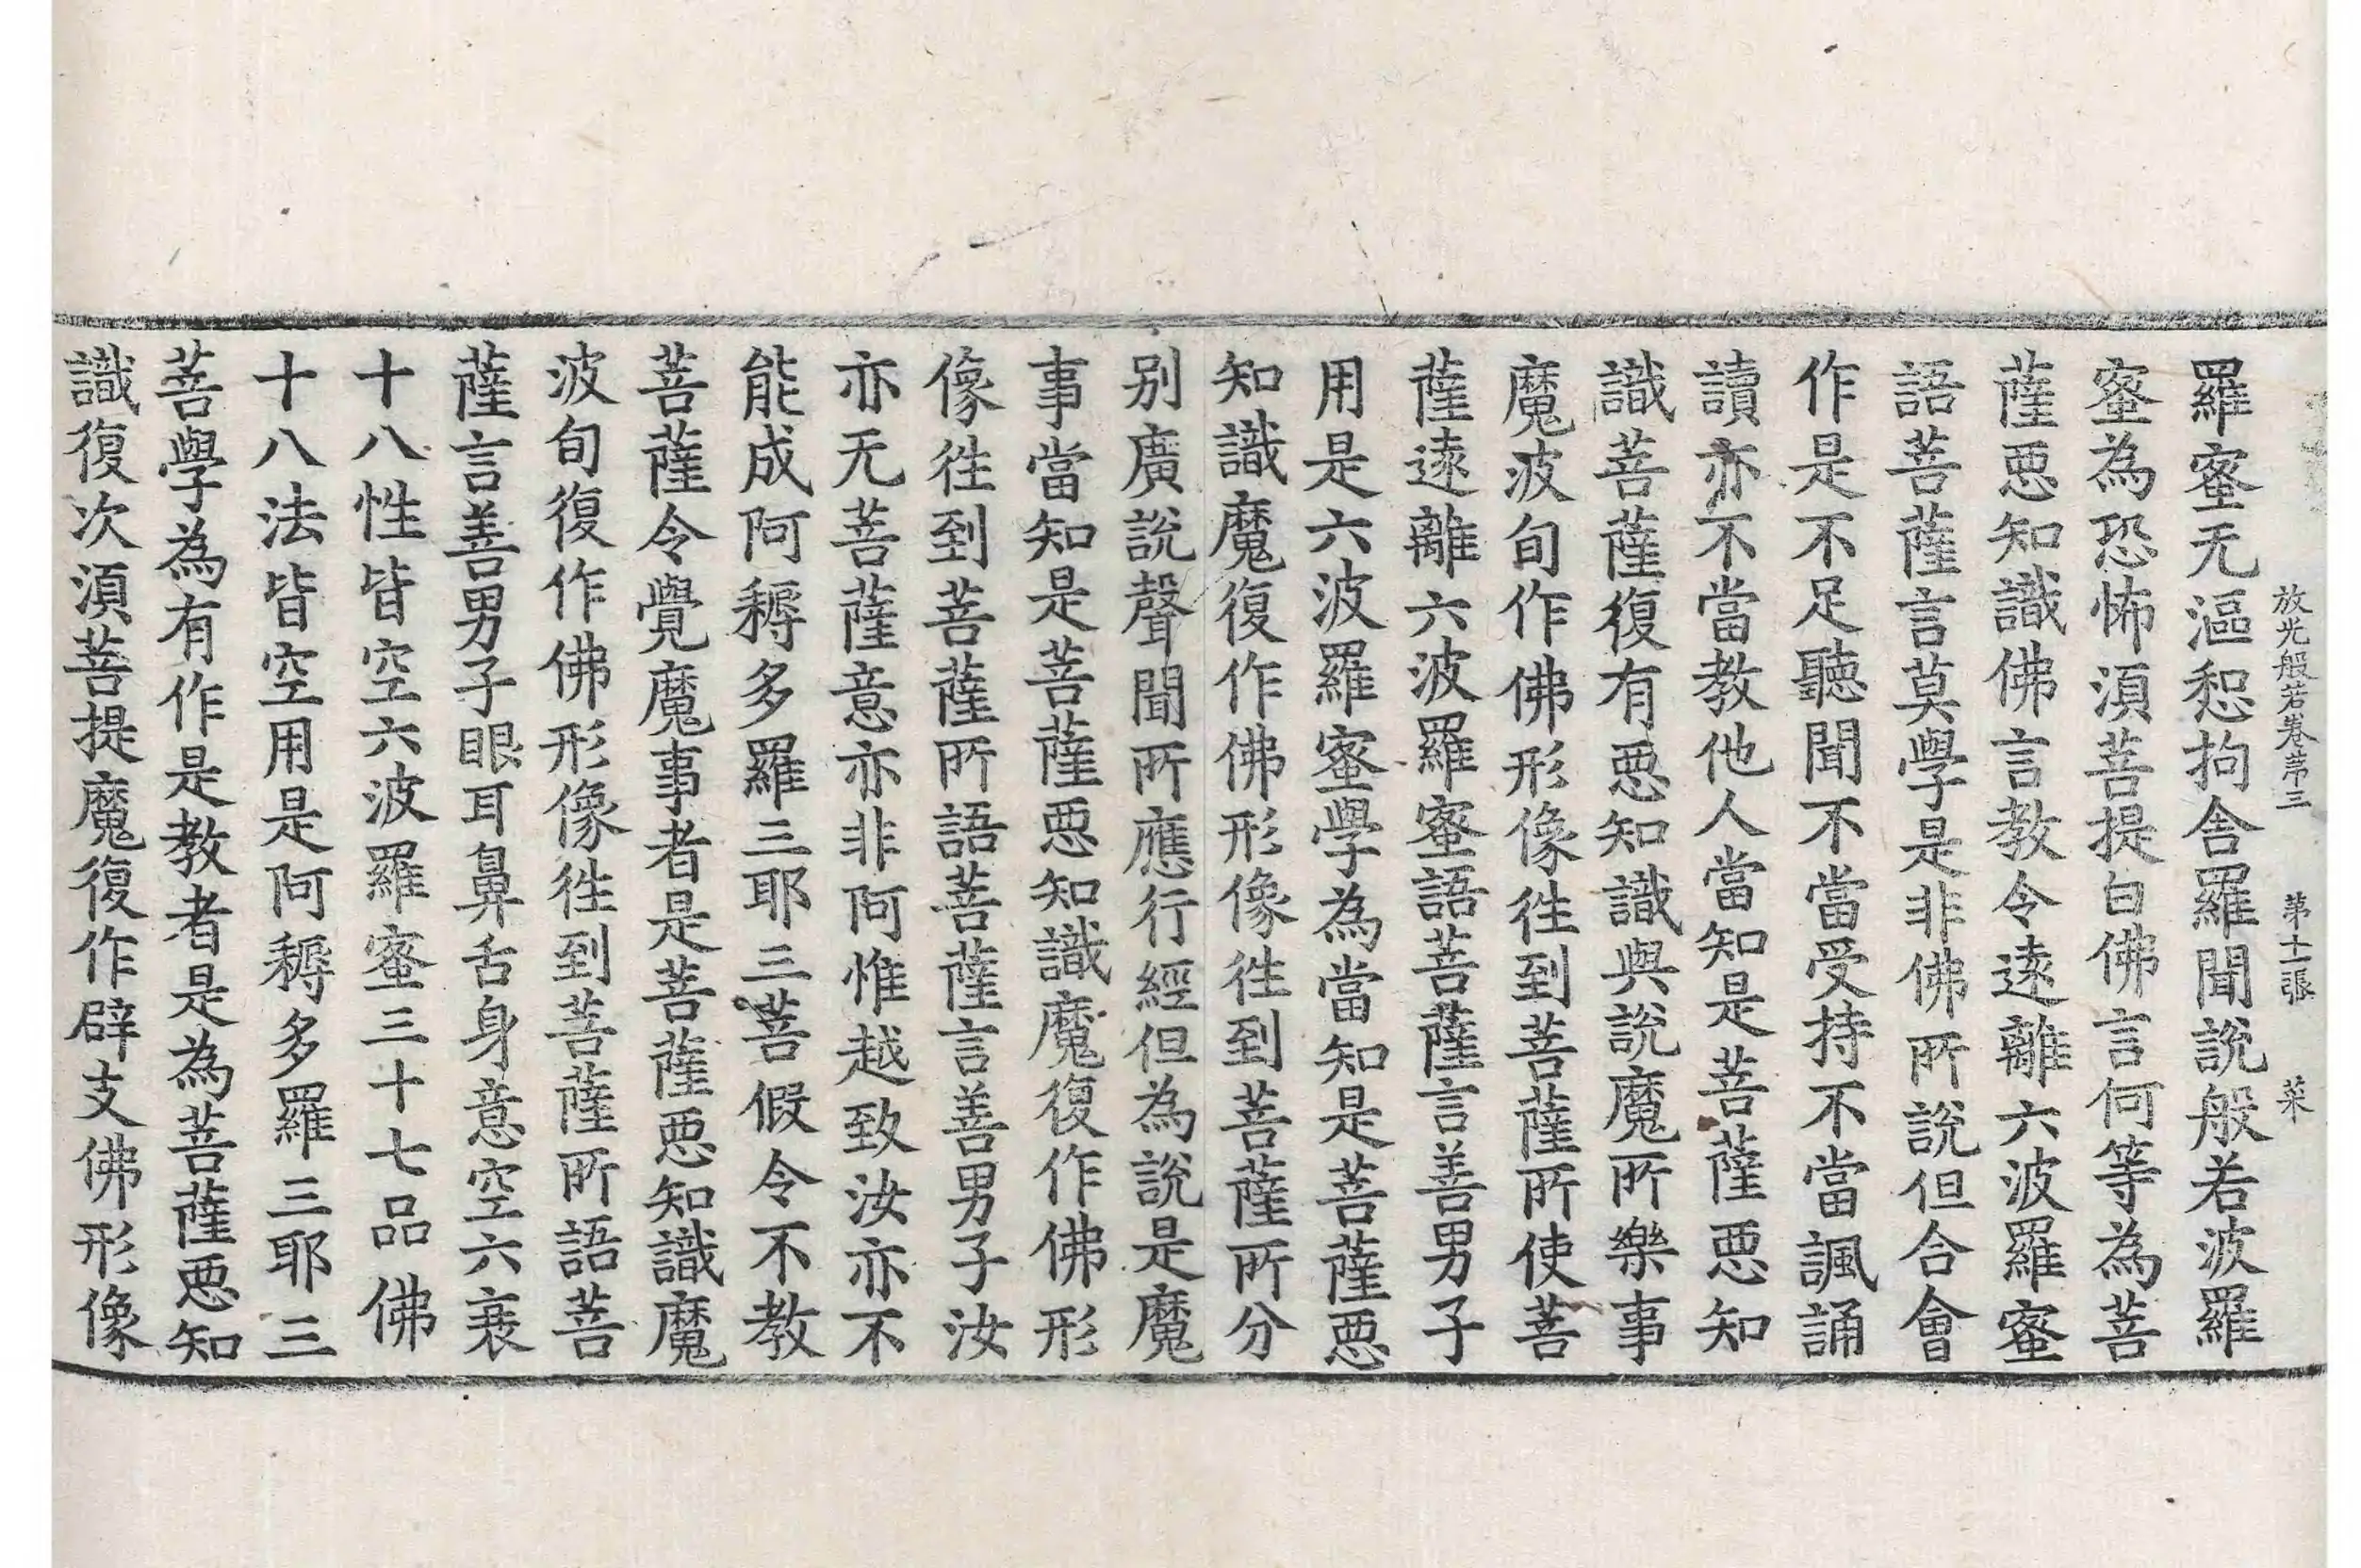 放光般若卷第三 第十二張 菜
羅蜜无漚惒拘舍羅聞說般若波羅
蜜為恐怖須菩提白佛言何等為菩
薩惡知識佛言教令遠離六波羅蜜
語菩薩言莫學是非佛所說但合會
作是不足聽聞不當受持不當諷誦
讀亦不當教他人當知是菩薩惡知
識菩薩復有惡知識與說魔所樂事
魔波旬作佛形像往到菩薩所使菩
薩遠離六波羅蜜語菩薩言善男子
用是六波羅蜜學為當知是菩薩惡
知識魔復作佛形像往到菩薩所分
別廣說聲聞所應行經但為說是魔
事當知是菩薩惡知識魔復作佛形
像往到菩薩所語菩薩言善男子汝
亦无菩薩意亦非阿惟越致汝亦不
能成阿耨多羅三耶三菩假令不教
菩薩令覺魔事者是菩薩惡知識魔
波旬復作佛形像往到菩薩所語菩
薩言善男子眼耳鼻舌身意空六衰
十八性皆空六波羅蜜三十七品佛
十八法皆空用是阿耨多羅三耶三
菩學為有作是教者是為菩薩惡知
識復次須菩提魔復作辟支佛形像